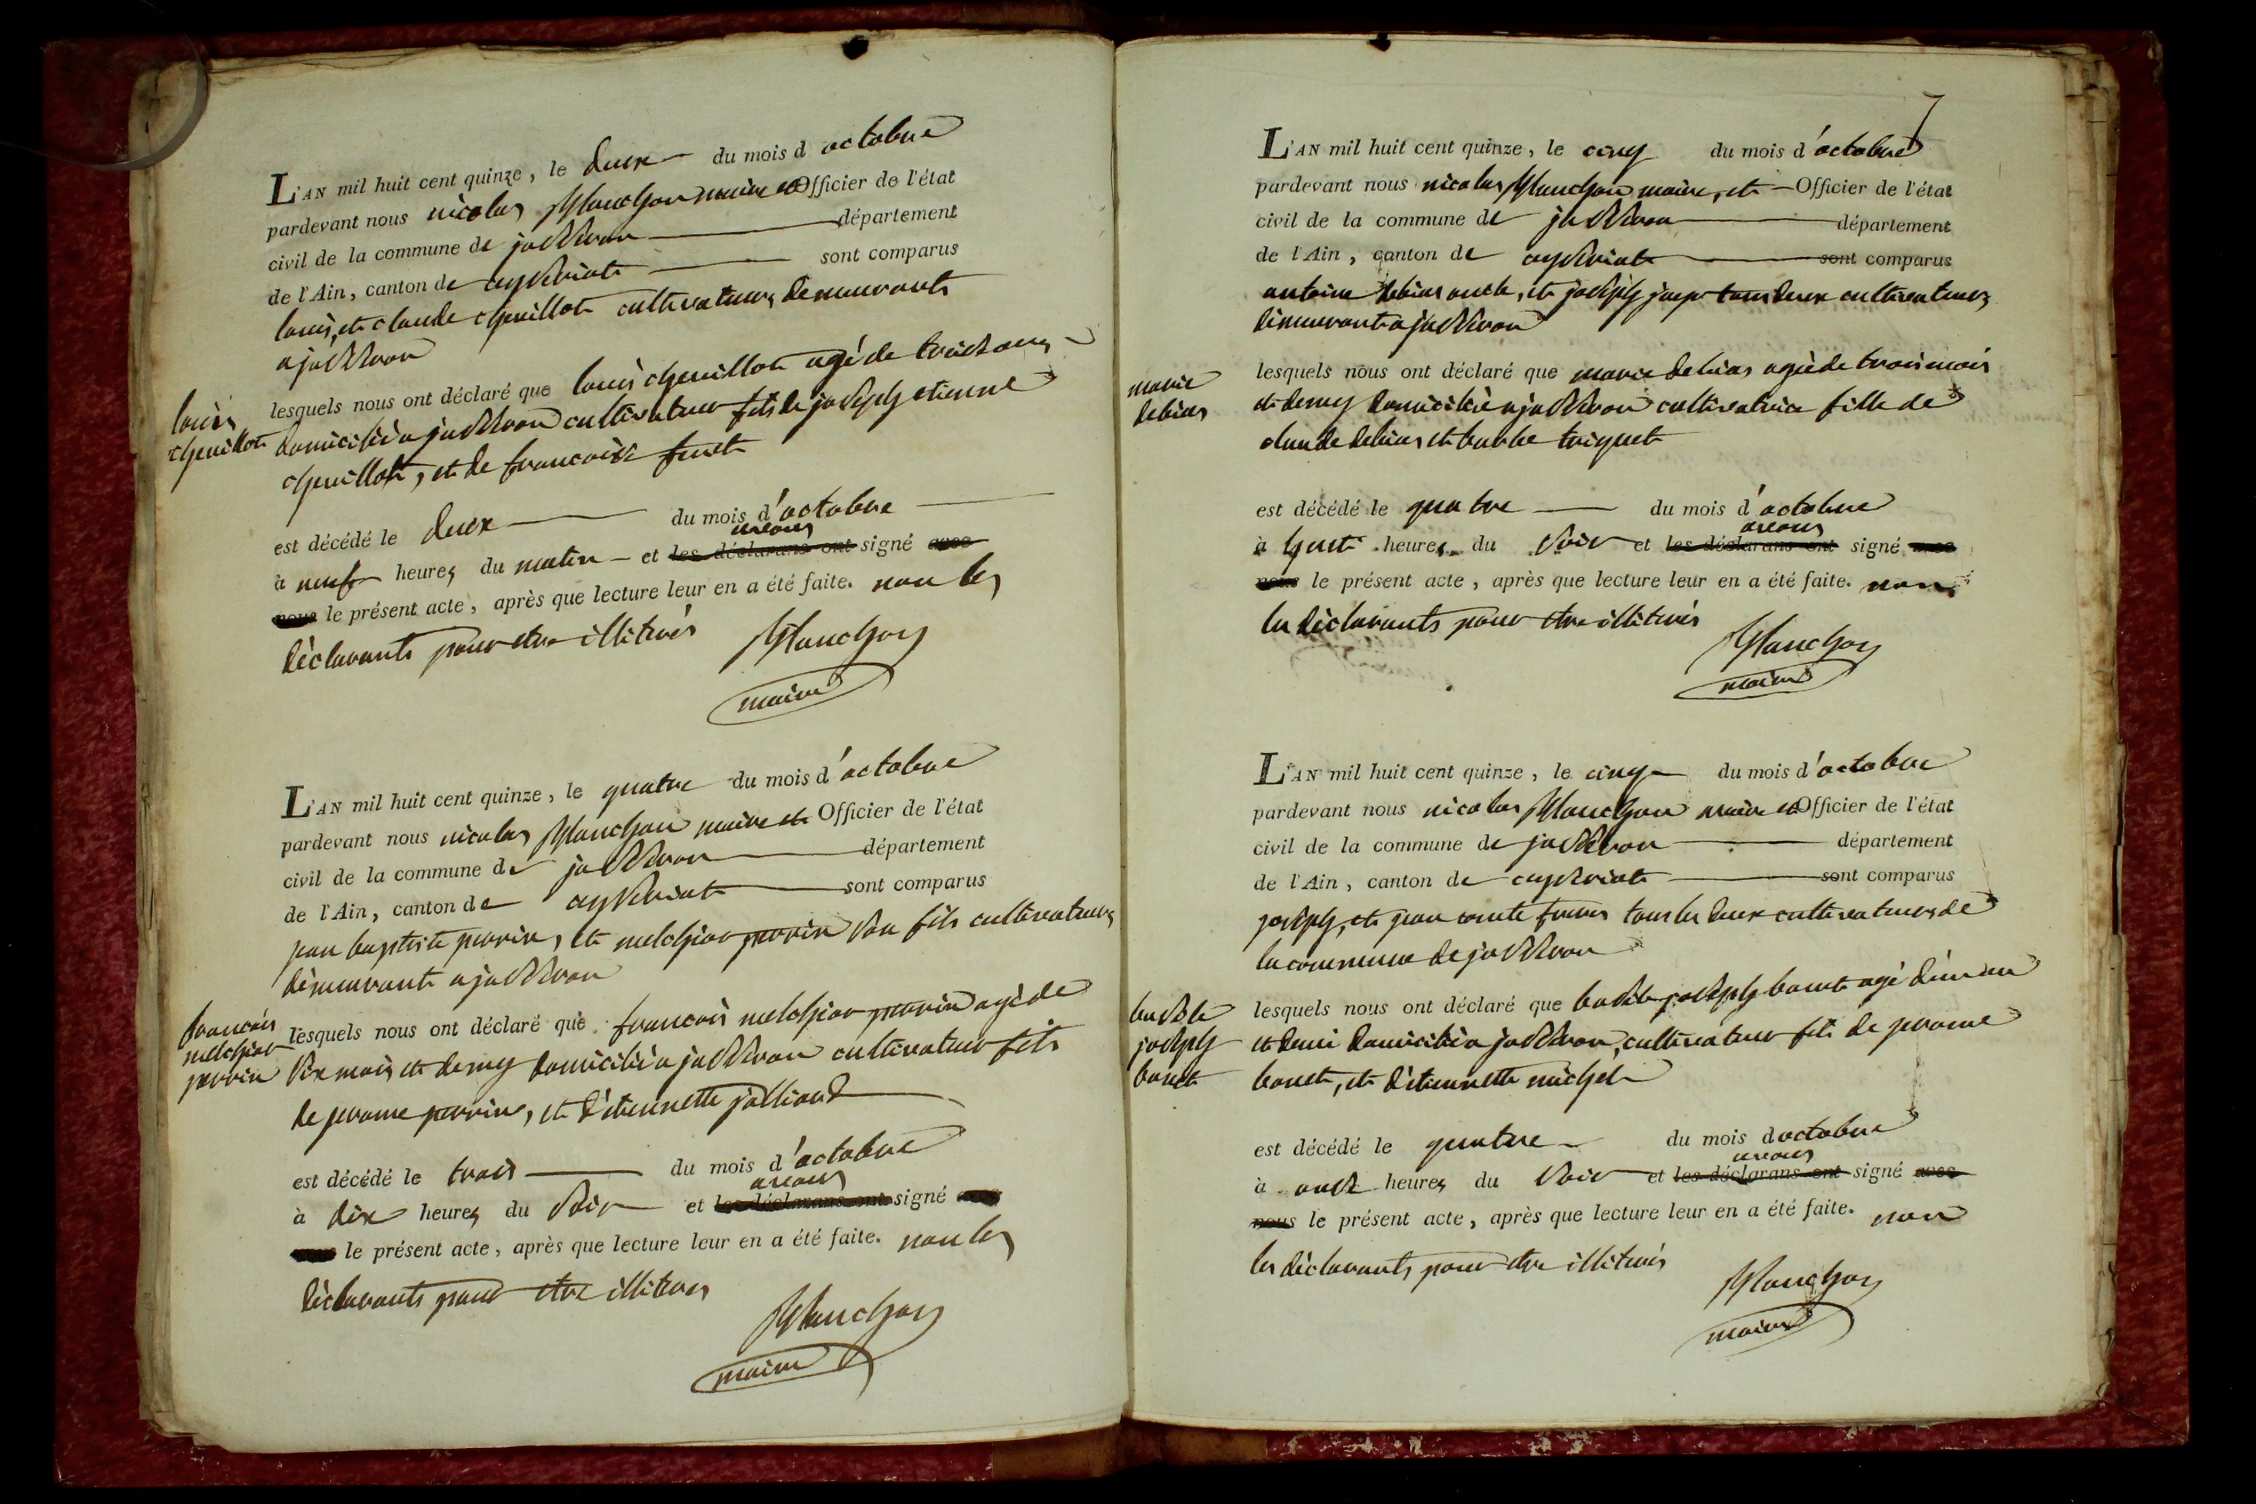 L'AN mil huit cent quinze, le deux du mois d octobre
pardevant nous nicolas planchon maire et Officier de l'état
civil de la commune de jasseron département
de l'Ain, canton de ceyseriat sont comparus
louis, et claude chevillot cultivateurs demeurants
a jasseron
lesquels nous ont déclaré que louis chevillot agé de trois ans
louis
chevillot
domicilié a jasseron cultivateur fils de joseph etienne
chevillot, et de francoise
est décédé le deux du mois d'octobre
avons
à neuf heures du matin et les déclarans ont signé avec
nous le présent acte, après que lecture leur en a été faite. non les
déclarants pour etre illiterés
planchon
maire
L'AN mil huit cent quinze, le quatre du mois d'octobre
pardevant nous nicolas planchon maire et Officier de l'état
civil de la commune de jasseron département
de l'Ain, canton de ceyseriat sont comparus
jean baptiste perrin, et melchior perrin son fils cultivateurs
demeurants a jasseron
francois
melchior
perrin
lesquels nous ont déclaré que francois melchior perrin agé de
six mois et demy domicilié a jasseron cultivateur fils
de jerome perrin, et d'étiennette jolliand
est décédé le trois du mois d'octobre
avons
à dix heures du soir et les déclarans ont signé avec
nous le présent acte, après que lecture leur en a été faite. non les
déclarants pour etre illiteres
planchon
maire
7
L'AN mil huit cent quinze, le cinq du mois d'octobre
pardevant nous nicolas planchon maire, et Officier de l'état
civil de la commune de jasseron département
de l'Ain, canton de ceyseriat sont comparus
antoine debias oncle, et joseph tous deux cultivateurs
demeurant a jasseron
marie
debias
lesquels nous ont déclaré que marie debias agée de trois mois
et demy domiciliée a jasseron cultivatrice fille de
claude debias et barbe
est décédé le quatre du mois d'octobre
avons
à huit heures du soir et les déclarans ont signé avec
nous le présent acte, après que lecture leur en a été faite. non
les déclarants pour etre illiterés
planchon
maire
L'AN mil huit cent quinze, le cinq du mois d'octobre
pardevant nous nicolas planchon maire et Officier de l'état
civil de la commune de jasseron département
de l'Ain, canton de ceyseriat sont comparus
joseph, et jean comte freres tous les deux cultivateurs de
la commune de jasseron
basile
joseph
bouet
lesquels nous ont déclaré que basile joseph bouet agé d'un an
et demi domicilié a jasseron, cultivateur fils de jerome
bouet, et d'étiennette michel
est décédé le quatre du mois d octobre
avons
à onze heures du soir et les déclarans ont signé avec
nous le présent acte, après que lecture leur en a été faite. non
les déclarants pour etre illiterés
planchon
maire